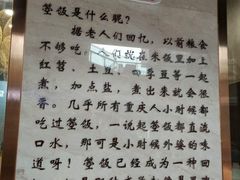 箜饭是什么呢？
据老人们回忆，以前粮食
不够吃，人们就在米饭里加上
红苕、土豆、四季豆等一起
煮，加点盐，煮出来就会很
香。几乎所有重庆人小时候都
吃过箜饭，一说起箜饭都直流
口水，那可是小时候外婆的味
道呀！箜饭已经成为一种回